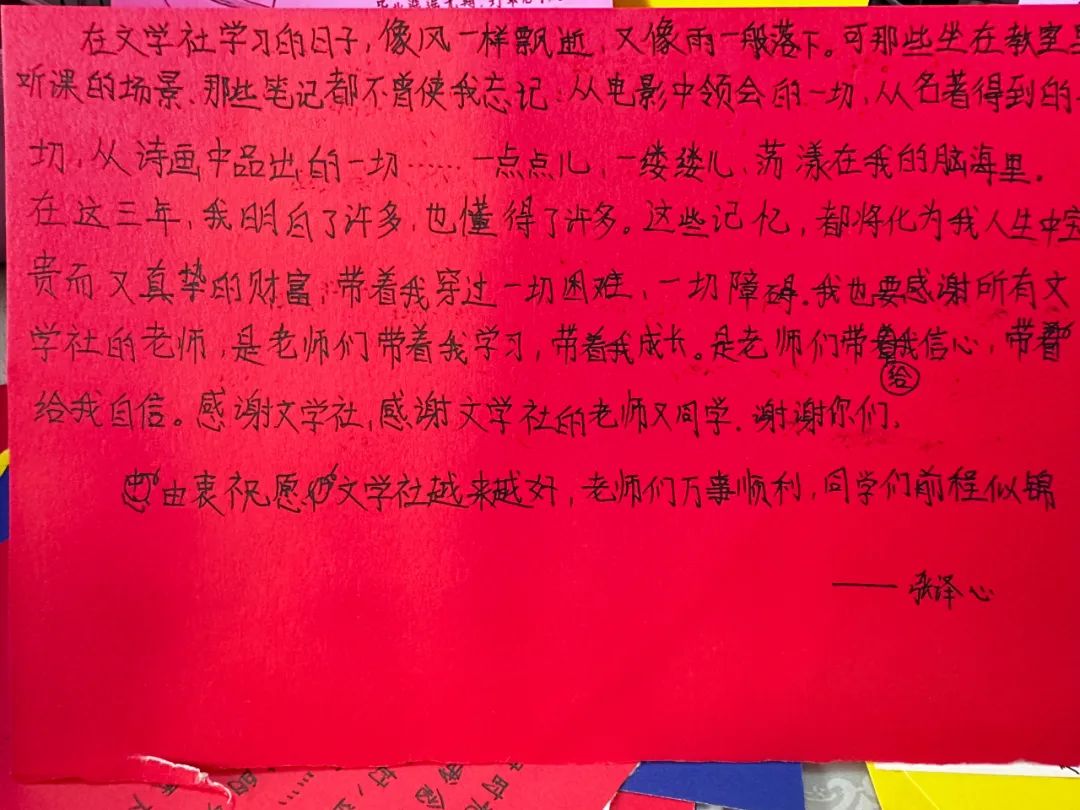 在文学社学习的日子，像风一样飘逝，又像雨一般落下。可那些坐在教室里
听课的场景、那些笔记都不曾使我忘记：从电影中领会的一切，从名著得到的一
切，从诗画中品出的一切……一点点儿，一缕缕儿，荡漾在我的脑海里。
在这三年，我明白了许多，也懂得了许多。这些记忆，都将化为我人生中宝
贵而又真挚的财富，带着我穿过一切困难，一切障碍。我也要感谢所有文
学社的老师，是老师们带着我学习，带着我成长。是老师们带给我信心，带着
给我自信。感谢文学社，感谢文学社的老师又同学，谢谢你们。
由衷祝愿文学社越来越好，老师们万事顺利，同学们前程似锦
——张泽心